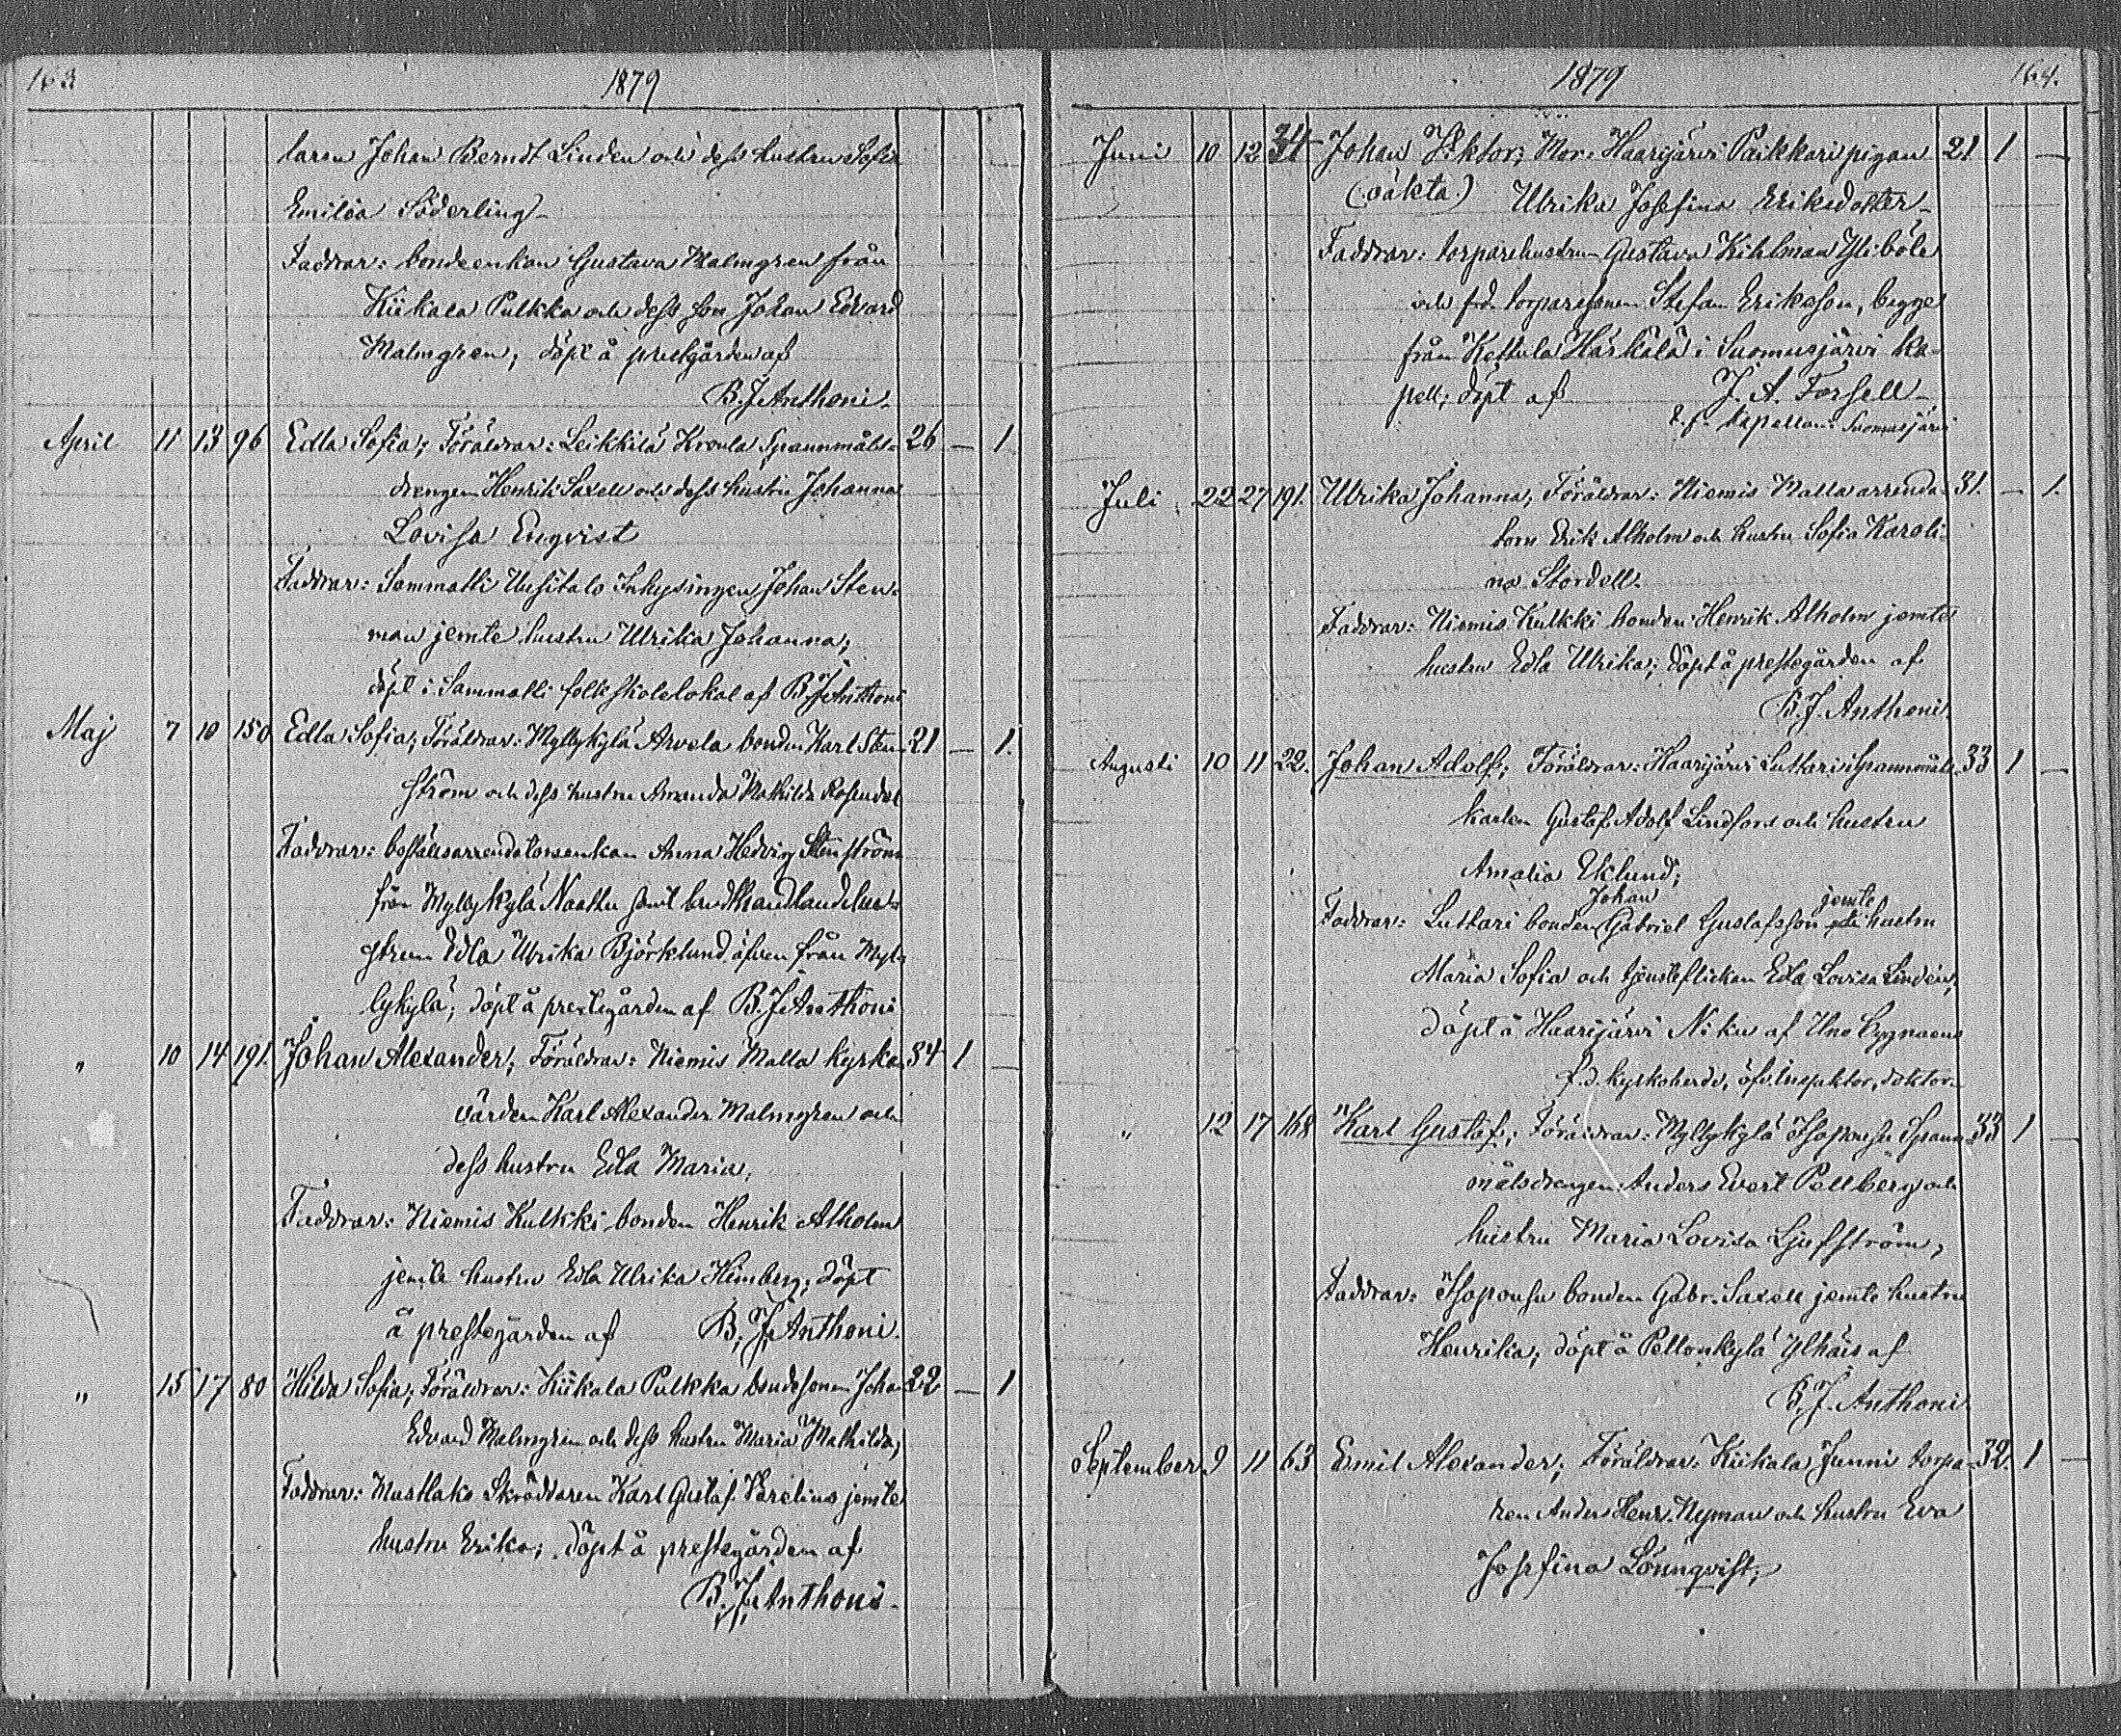 163
1879
laren Johan Berndt Linden och dess hustru Sofia
Emilia Söderling
Faddrar: bondeenkan Gustava Malmgren från
Kiikala Pulkka och dess son Johan Edvard
Malmgren; döpt å prestgården af
B. J. Anthoni.
April 11 13 96 Edla Sofia; Föräldrar: Leikkilä Kroula Spannmåls- 26 — 1
drengen Henrik Saxell och dess hustru Johanna
Lovisa Enqvist
Faddrar: Sammatti Uusitalo Inhysingen Johan Sten-
man jemte hustru Ulrika Johanna;
döpt i Sammatti folkskolelokal af B. J. Anthoni
Maj 7 10 150 Edla Sofia; Föräldrar: Myllykylä Arvela bonden Karl Sten- 21 — 1.
ström och dess hustru Amanda Mathilda Rosendal
Faddrar: boställsarrendatorsenkan Anna Hedvig Stenström
från Myllykylä Naattu samt landthandlandehu-
strun Edla Ulrika Björklund äfven från Myl-
lykylä; döpt å prestegården af B. J. Anthoni
" 10 14 191. Johan Alexander; Föräldrar: Niemis Malla kyrko- 34 1 —
värden Karl Alexander Malmgren och
dess hustru Edla Maria;
Faddrar: Niemis Kulkki bonden Henrik Alholm
jemte hustru Edla Ulrika Himberg; döpt
å prestegården af B. J. Anthoni.
" 15 17 80 Hilda Sofia; Föräldrar: Kiikala Pulkka bondesonen Joha 22 — 1
Edvard Malmgren och dess hustru Maria Mathilda;
Faddrar: Mustlaks Skräddaren Karl Gustaf jemte
hustru Erika; döpt å prestegården af
B. J. Anthoni.
1879
164.
Juni 10 12 34 Johan Viktor; Mor: Haarijärvi Paikkari pigan 21 1 —
(oäkta) Ulrika Josefina Eriksdotter
Faddrar: torparehustrun Gustava Kihlman Yliböle
och frd. torparesonen Stefan Eriksson, begge
från Kettula Härkälä i Suomusjärvi ka-
pell; döpt af J. A. Forsell
t. f. kapellan i Suomusjärvi
Juli 22 27 191. Ulrika Johanna; Föräldrar: Niemis Malla arrenda- 31. — 1.
torn Erik Alholm och hustru Sofia Karoli-
na Stordell.
Faddrar: Niemis Kulkki bonden Henrik Alholm jemte
hustru Edla Ulrika; döpt å prestegården af
B. J. Anthoni.
Augusti 10 11 22. Johan Adolf; Föräldrar: Haarijärvi Luttari Spannmåls- 33 1 —
karlen Gustaf Adolf Lindfors och hustru
Amalia Eklund;
Johan jemte
Faddrar: Luttari bonden Gabriel Gustafsson och hustru
Maria Sofia och tjensteflickan Edla Lovisa Lindén;
döpt å Haarijärvi Niku af Uno Cygnaeus
f. d. kyrkoherde, öfv. inspektor, doktor.
" 12 17 168 Karl Gustaf; Föräldrar: Myllykylä Isopousu Spann- 33 1 —
målsdrengen Anders Evert Pellberg och
hustru Maria Lovisa Ljufström,
Faddrar: Isopousu bonden Gabr. Saxell jemte hustru
Henrika; döpt å Pellonkylä Ylhäis af
B. J. Anthoni
September 9 11 63 Emil Alexander; Föräldrar: Kiikala Junni torpa- 32. 1 —
ren Anders Henr. Nyman och hustru Eva
Josefina Lönnqvist;